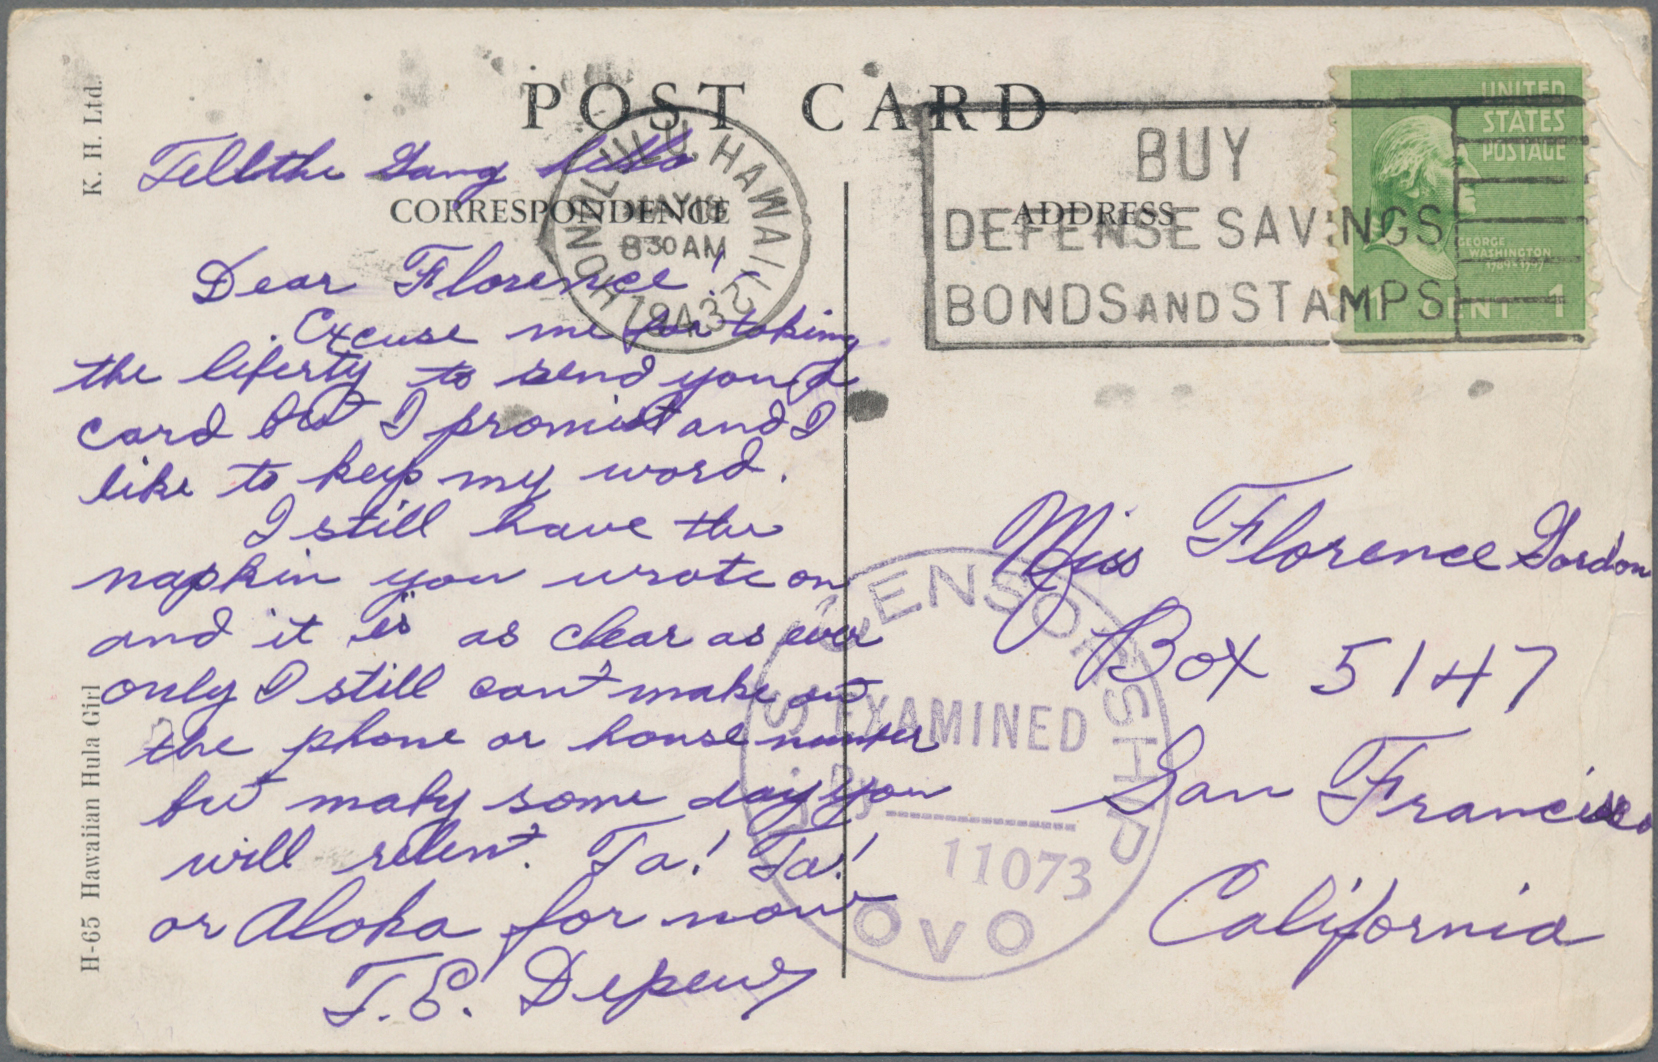 POST CARD
K. H. Ltd.
Tell the Gang hello
CORRESPONDENCE
ADDRESS
HONOLULU HAWAII
MAY 18
8 30 AM
1943
BUY
DEFENSE SAVINGS
BONDS AND STAMPS
UNITED
STATES
POSTAGE
GEORGE
WASHINGTON
1789-1797
CENT 1
Dear Florence!
Excuse me for taking
the liberty to send you a
card but I promist and I
like to keep my word.
I still have the
napkin you wrote on
and it is as clear as ever
only I still can't make out
the phone or house number
but maby some day you
will relent. Ta! Ta!
or Aloha for now
T. E. Depew
Miss Florence Gordon
Box 5147
San Francisco
California
U.S. CENSORSHIP
EXAMINED
BY
11073
OVO
H-65 Hawaiian Hula Girl